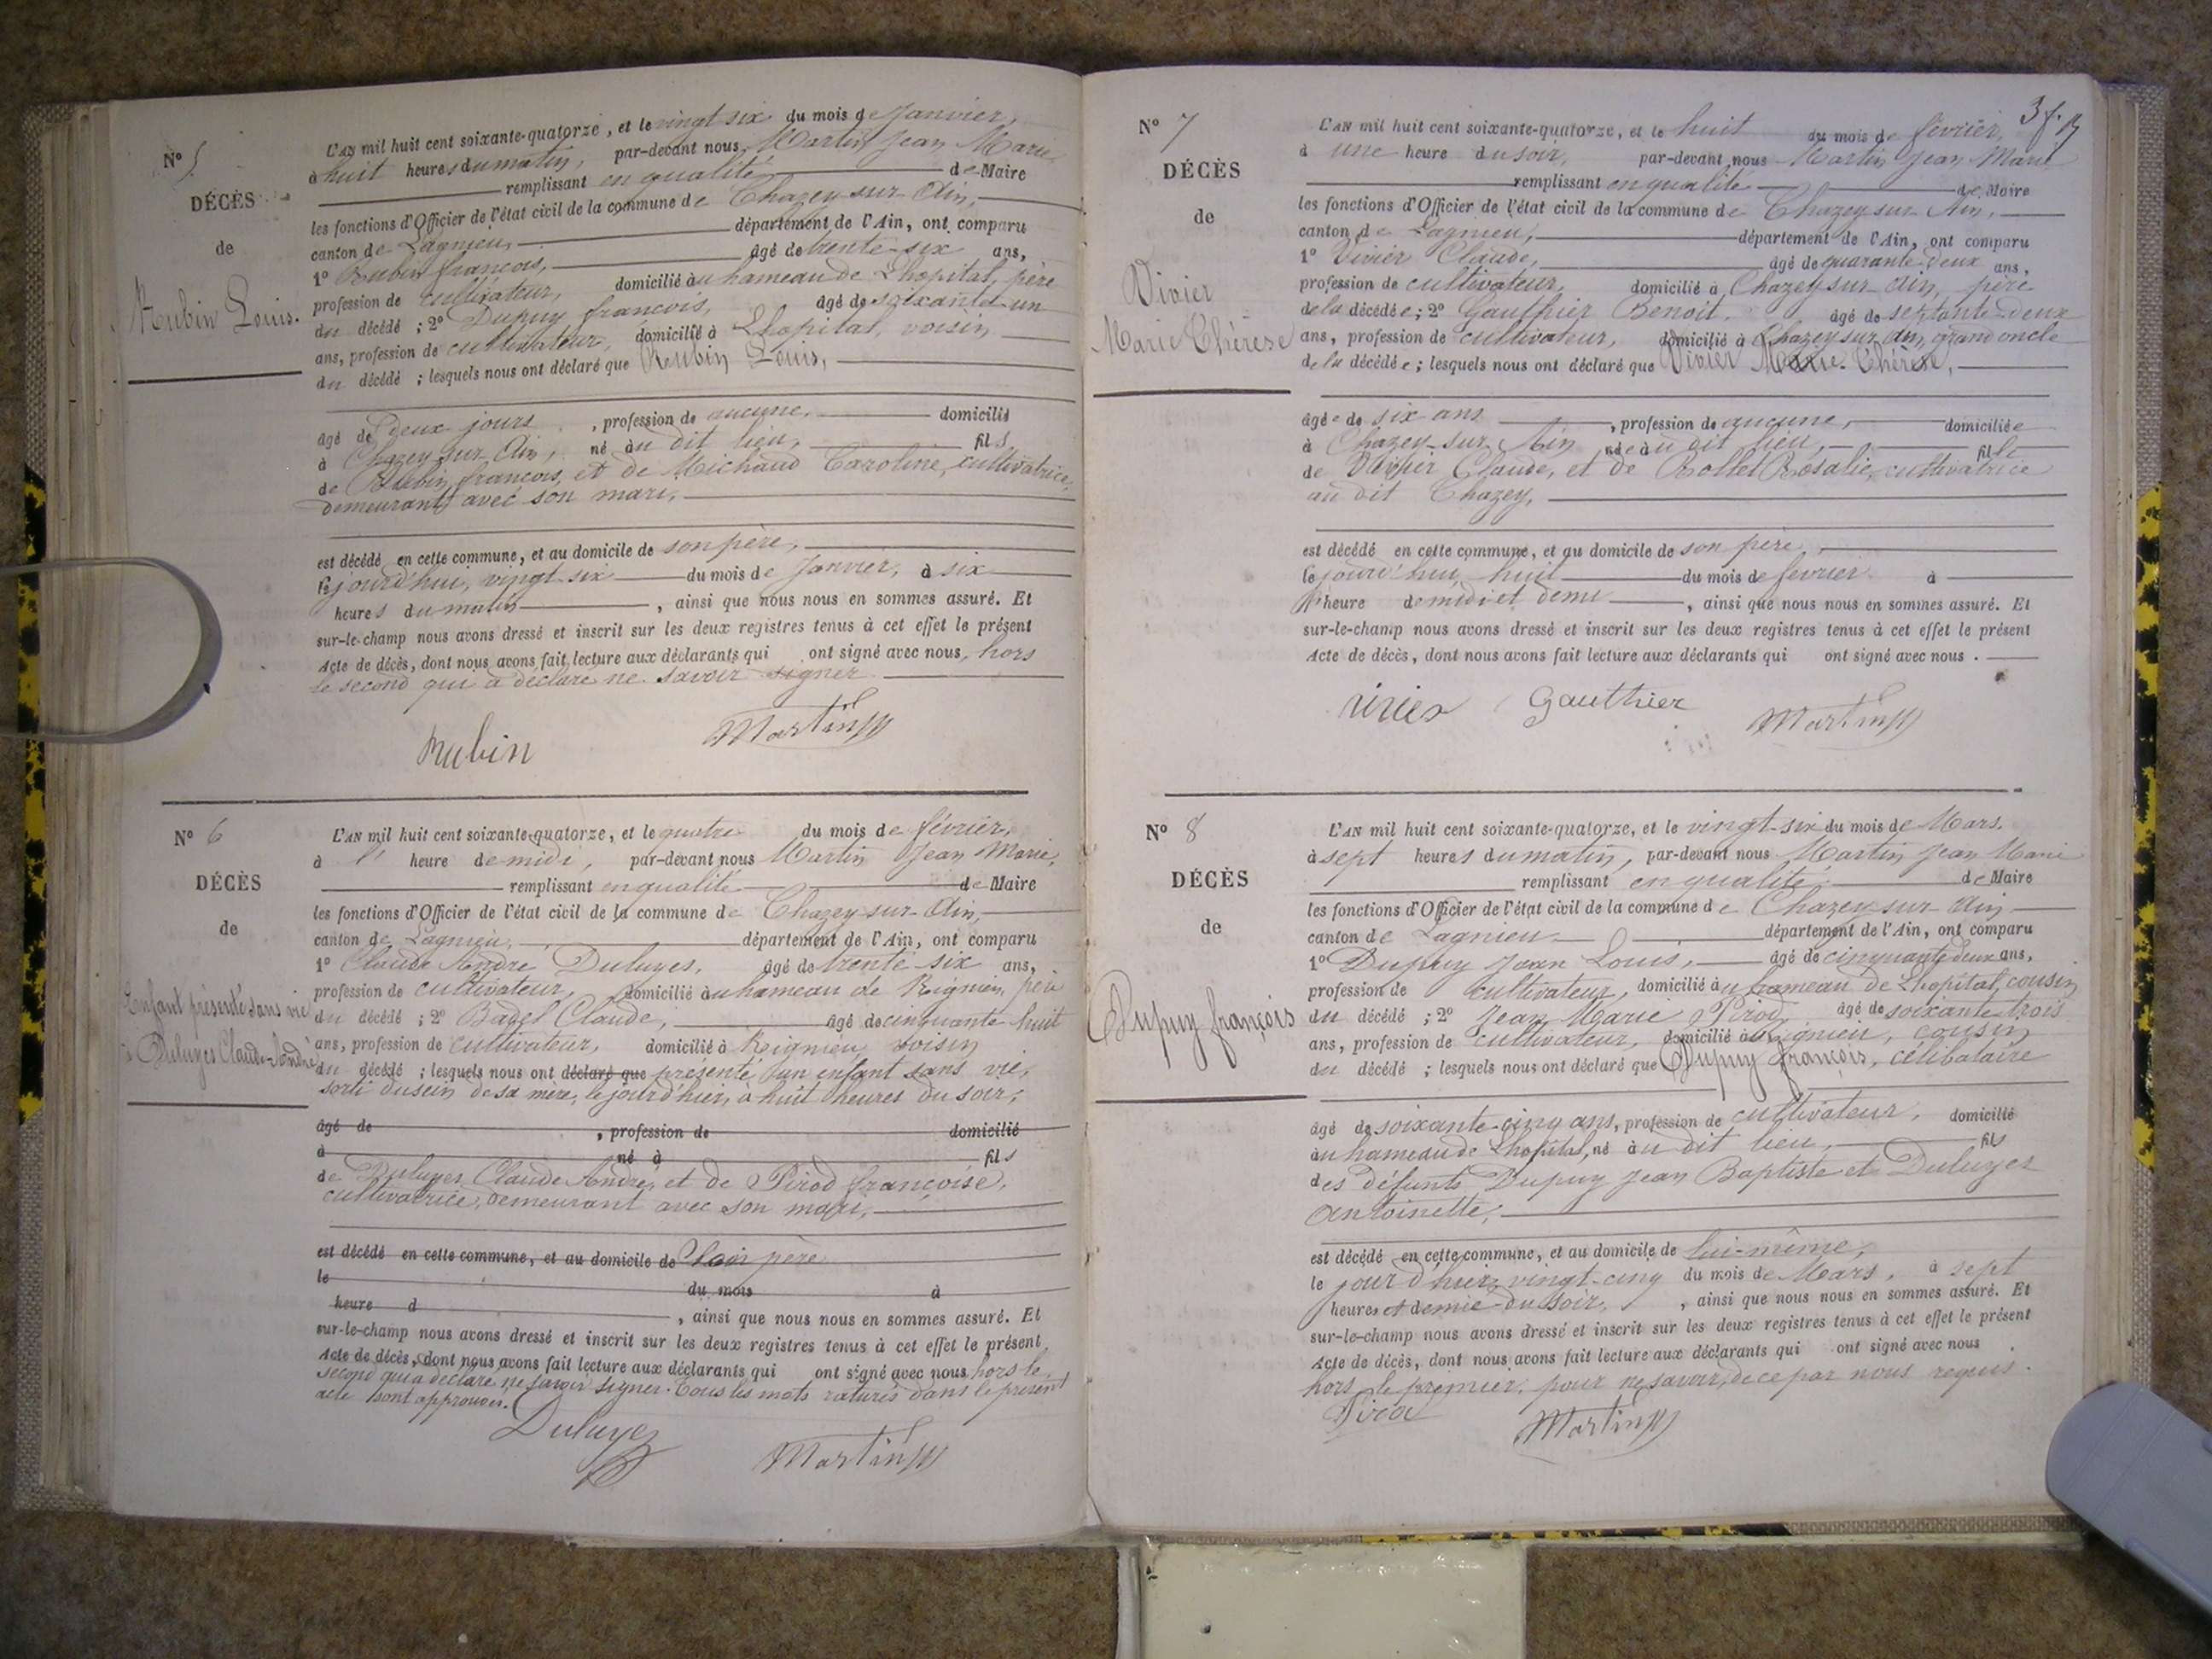 N° 5
DÉCÈS
de
Rubin Louis.
L'AN mil huit cent soixante-quatorze, et le vingt six du mois de Janvier,
à huit heures du matin, par-devant nous Martin Jean Marie
remplissant en qualité de Maire
les fonctions d'Officier de l'état civil de la commune de Chazey-sur-Ain,
canton de Lagnieu, département de l'Ain, ont comparu
1° Rubin françois, âgé de trente-six ans,
profession de cultivateur, domicilié au hameau de Lhopital, père
du décédé ; 2° Dupuy françois, âgé de soixante et un
ans, profession de cultivateur, domicilié à Lhopital, voisin
du décédé ; lesquels nous ont déclaré que Rubin Louis,
âgé de deux jours, profession de aucune, domicilié
à Chazey-sur-Ain, né au dit lieu, fils
de Rubin françois, et de Michaud Caroline, cultivatrice,
demeurant avec son mari,
est décédé en cette commune, et au domicile de son père,
le jourd'hui, vingt-six du mois de Janvier, à six
heures du matin, ainsi que nous nous en sommes assuré. Et
sur-le-champ nous avons dressé et inscrit sur les deux registres tenus à cet effet le présent
Acte de décès, dont nous avons fait lecture aux déclarants qui ont signé avec nous, hors
le second qui a déclaré ne savoir signer
Rubin Martin
N° 6
DÉCÈS
de
Enfant présenté sans vie
à Duluyes Claude-André
L'AN mil huit cent soixante-quatorze, et le quatre du mois de février,
à l' heure de midi, par-devant nous Martin Jean Marie,
remplissant en qualité de Maire
les fonctions d'Officier de l'état civil de la commune de Chazey-sur-Ain,
canton de Lagnieu, département de l'Ain, ont comparu
1° Claude André Duluyes, âgé de trente six ans,
profession de cultivateur, domicilié au hameau de Rignieu, père
du décédé ; 2° Badel Claude, âgé de cinquante huit
ans, profession de cultivateur, domicilié à Reignieu, voisin
du décédé ; lesquels nous ont déclaré que présenté un enfant sans vie,
sorti du sein de sa mère, le jour d'hier, à huit heures du soir,
âgé de , profession de domicilié
à né à fils
de Duluyes Claude André, et de Pirod françoise,
cultivatrice, demeurant avec son mari,
est décédé en cette commune, et au domicile de père
le du mois à
heure d , ainsi que nous nous en sommes assuré. Et
sur-le-champ nous avons dressé et inscrit sur les deux registres tenus à cet effet le présent
Acte de décès, dont nous avons fait lecture aux déclarants qui ont signé avec nous hors le
second qui a déclaré ne savoir signer. Tous les mots raturés dans le présent
acte sont approuvés.
Duluyes Martin
3 f.
N° 7
DÉCÈS
de
Vivier
Marie Thérèse
L'AN mil huit cent soixante-quatorze, et le huit du mois de février,
à une heure du soir, par-devant nous Martin Jean Marie
remplissant en qualité de Maire
les fonctions d'Officier de l'état civil de la commune de Chazey sur Ain,
canton de Lagnieu, département de l'Ain, ont comparu
1° Vivier Claude, âgé de quarante-deux ans,
profession de cultivateur, domicilié à Chazey sur Ain, père
de la décédée ; 2° Gauthier Benoit, âgé de septante-deux
ans, profession de cultivateur, domicilié à Chazey sur Ain, grand oncle
de la décédée ; lesquels nous ont déclaré que Vivier Marie-Thérèse,
âgée de six ans, profession de aucune, domiciliée
à Chazey-sur-Ain née au dit lieu, fille
de Vivier Claude, et de Rollet Rosalie, cultivatrice
au dit Chazey,
est décédé en cette commune, et au domicile de son père,
le jourd'hui huit du mois de février à
l'heure de midi et demi, ainsi que nous nous en sommes assuré. Et
sur-le-champ nous avons dressé et inscrit sur les deux registres tenus à cet effet le présent
Acte de décès, dont nous avons fait lecture aux déclarants qui ont signé avec nous.
vivier Gauthier Martin
N° 8
DÉCÈS
de
Dupuy françois
L'AN mil huit cent soixante-quatorze, et le vingt-six du mois de Mars,
à sept heures du matin, par-devant nous Martin Jean Marie
remplissant en qualité de Maire
les fonctions d'Officier de l'état civil de la commune de Chazey sur Ain
canton de Lagnieu département de l'Ain, ont comparu
1° Dupuy Jean Louis, âgé de cinquante deux ans,
profession de cultivateur, domicilié au hameau de Lhopital, cousin
du décédé ; 2° Jean Marie Pirod, âgé de soixante trois
ans, profession de cultivateur, domicilié à Rignieu, cousin
du décédé ; lesquels nous ont déclaré que Dupuy françois, célibataire
âgé de soixante-cinq ans, profession de cultivateur, domicilié
au hameau de Lhopital, né au dit lieu, fils
des défunts Dupuy Jean Baptiste et Duluyes
Antoinette,
est décédé en cette commune, et au domicile de lui-même,
le jour d'hier, vingt-cinq du mois de Mars, à sept
heures et demie du soir, , ainsi que nous nous en sommes assuré. Et
sur-le-champ nous avons dressé et inscrit sur les deux registres tenus à cet effet le présent
Acte de décès, dont nous avons fait lecture aux déclarants qui ont signé avec nous
hors le premier, pour ne savoir, de ce par nous requis.
Pirod Martin